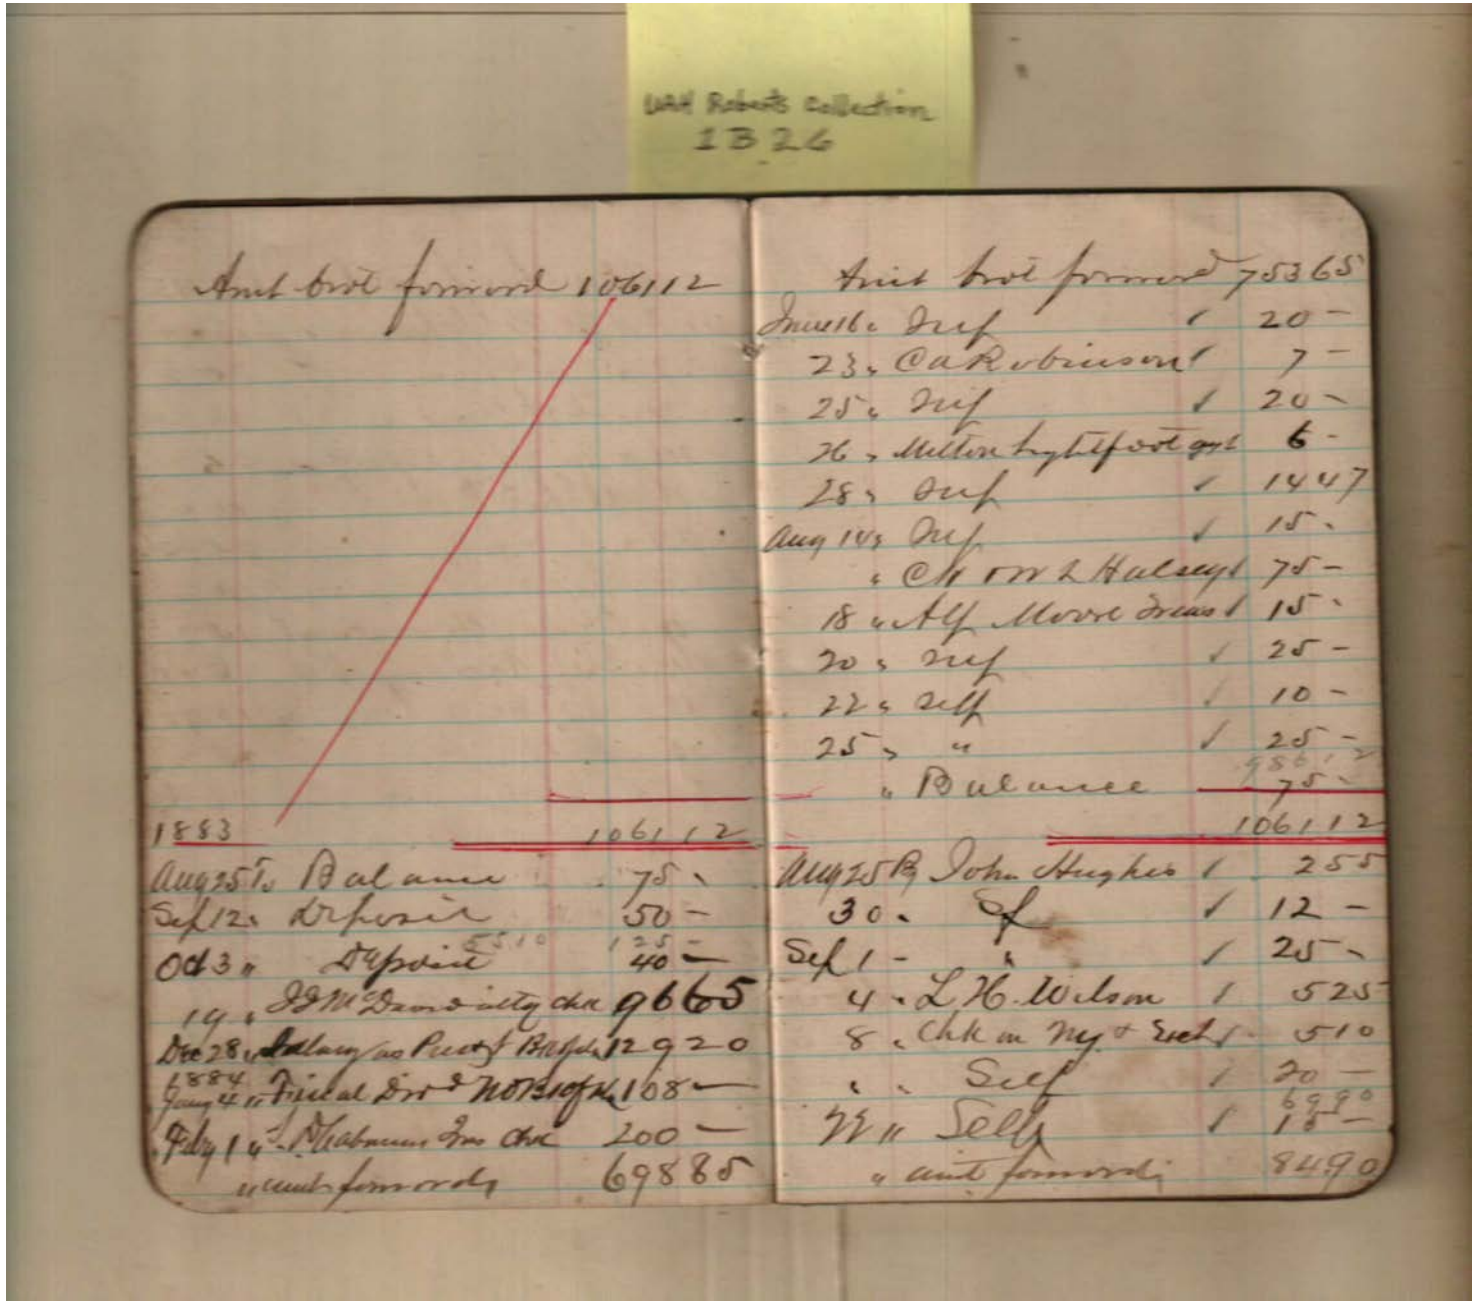 UAH Roberts Collection
1 B 26
Amt brot forward 1061 12
1883 1061 12
Aug 25 To Balance 75 -
Sep 12 " Deposit 50 -
55 10 125 -
Oct 3 " Deposit 40 -
19 " atty chk 96 65
Dec 28 " Salary as 129 20
1884
Jany 4 " Div 108 -
Feby 1 " Ins Chk 200 -
" amt forward 698 85
Amt brot forward 753 65
June 16 " Self ✓ 20 -
23 " C A Robinson ✓ 7 -
25 " Self ✓ 20 -
26 " Milton Lightfoot 6 -
28 " Self ✓ 14 47
Aug 14 " Self ✓ 15 -
" Halsey ✓ 75 -
18 " Alf Moore ✓ 15 -
20 " Self ✓ 25 -
22 " Self ✓ 10 -
25 " " ✓ 25 -
986 12
" Balance 75 -
1061 12
Aug 25 By John Hughes ✓ 2 55
30 " ✓ 12 -
Sep 1 - " ✓ 25 -
4 " L H. Wilson ✓ 5 25
8 " Chk on N y + Exch ✓ 5 10
" " Self ✓ 20 -
69 90
22 " Self ✓ 15 -
" amt forward 84 90